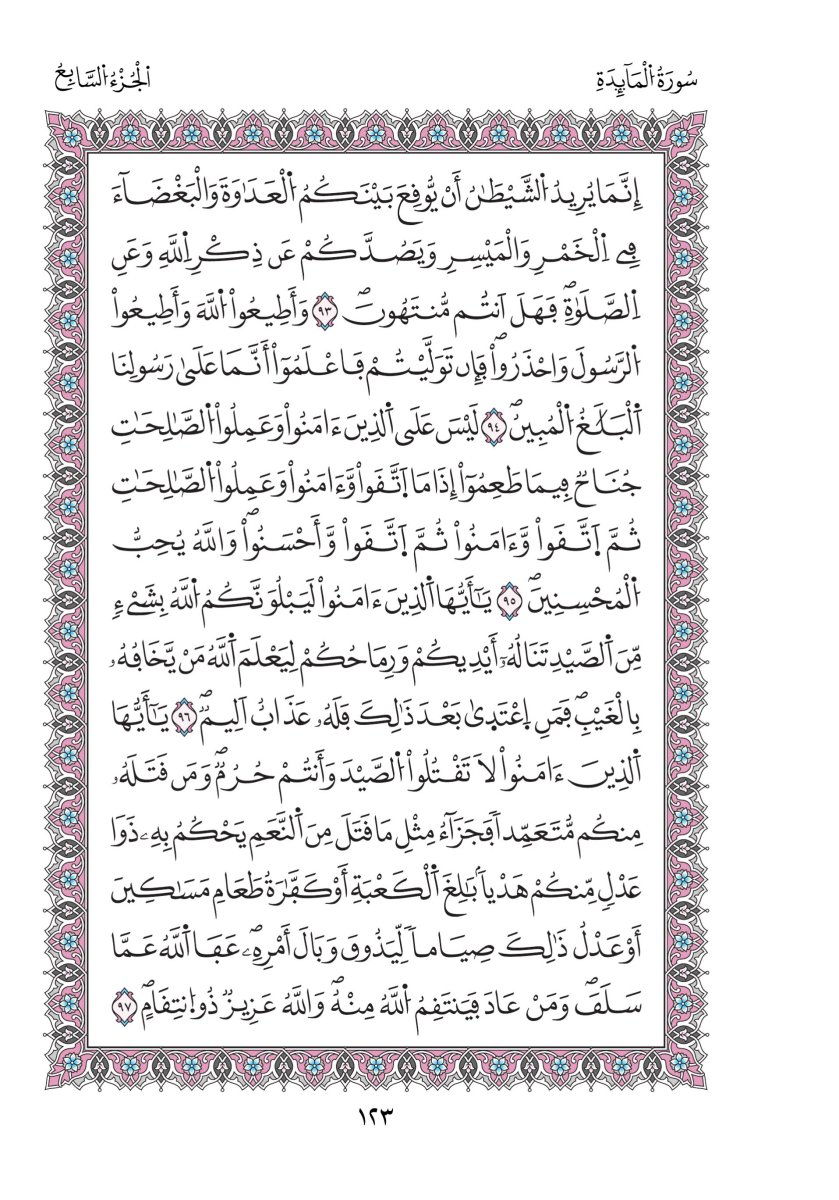 سُورَةُ اُ۬لْمَآئِدَةِ
اَ۬لْجُزْءُ اُ۬لسَّابِعُ
إِنَّمَا يُرِيدُ اُ۬لشَّيْطَٰنُ أَنْ يُّوقِعَ بَيْنَكُمُ اُ۬لْعَدَٰوَةَ وَالْبَغْضَآءَ
فِے اِ۬لْخَمْرِ وَالْمَيْسِرِ وَيَصُدَّكُمْ عَن ذِكْرِ اِ۬للَّهِ وَعَنِ
اِ۬لصَّلَوٰةِۖ فَهَلَ اَنتُم مُّنتَهُونَۖ ٩٣ وَأَطِيعُواْ اُ۬للَّهَ وَأَطِيعُواْ
اُ۬لرَّسُولَ وَاحْذَرُواْۖ فَإِن تَوَلَّيْتُمْ فَاعْلَمُوٓاْ أَنَّمَا عَلَىٰ رَسُولِنَا
اَ۬لْبَلَٰغُ اُ۬لْمُبِينُۖ ٩٤ لَيْسَ عَلَى اَ۬لذِينَ ءَامَنُواْ وَعَمِلُواْ اُ۬لصَّٰلِحَٰتِ
جُنَاحٞ فِيمَا طَعِمُوٓاْ إِذَا مَا اَ۪تَّقَواْ وَّءَامَنُواْ وَعَمِلُواْ اُ۬لصَّٰلِحَٰتِ
ثُمَّ اَ۪تَّقَواْ وَّءَامَنُواْ ثُمَّ اَ۪تَّقَواْ وَّأَحْسَنُواْۖ وَاللَّهُ يُحِبُّ
اُ۬لْمُحْسِنِينَۖ ٩٥ يَٰٓأَيُّهَا اَ۬لذِينَ ءَامَنُواْ لَيَبْلُوَنَّكُمُ اُ۬للَّهُ بِشَےْءٖ
مِّنَ اَ۬لصَّيْدِ تَنَالُهُۥٓ أَيْدِيكُمْ وَرِمَاحُكُمْ لِيَعْلَمَ اَ۬للَّهُ مَنْ يَّخَافُهُۥ
بِالْغَيْبِۖ فَمَنِ اِ۪عْتَد۪ىٰ بَعْدَ ذَٰلِكَ فَلَهُۥ عَذَابٌ اَلِيمٞۖ ٩٦ يَٰٓأَيُّهَا
اَ۬لذِينَ ءَامَنُواْ لَا تَقْتُلُواْ اُ۬لصَّيْدَ وَأَنتُمْ حُرُمٞۖ وَمَن قَتَلَهُۥ
مِنكُم مُّتَعَمِّداٗ فَجَزَآءُ مِثْلِ مَا قَتَلَ مِنَ اَ۬لنَّعَمِ يَحْكُمُ بِهِۦ ذَوَا
عَدْلٖ مِّنكُمْ هَدْياَۢ بَٰلِغَ اَ۬لْكَعْبَةِ أَوْ كَفَّٰرَةُ طَعَامِ مَسَٰكِينَ
أَوْ عَدْلُ ذَٰلِكَ صِيَاماٗ لِّيَذُوقَ وَبَالَ أَمْرِهِۦۖ عَفَا اَ۬للَّهُ عَمَّا
سَلَفَۖ وَمَنْ عَادَ فَيَنتَقِمُ اُ۬للَّهُ مِنْهُۖ وَاللَّهُ عَزِيزٞ ذُو اُ۪نتِقَامٍۖ ٩٧
١٢٣